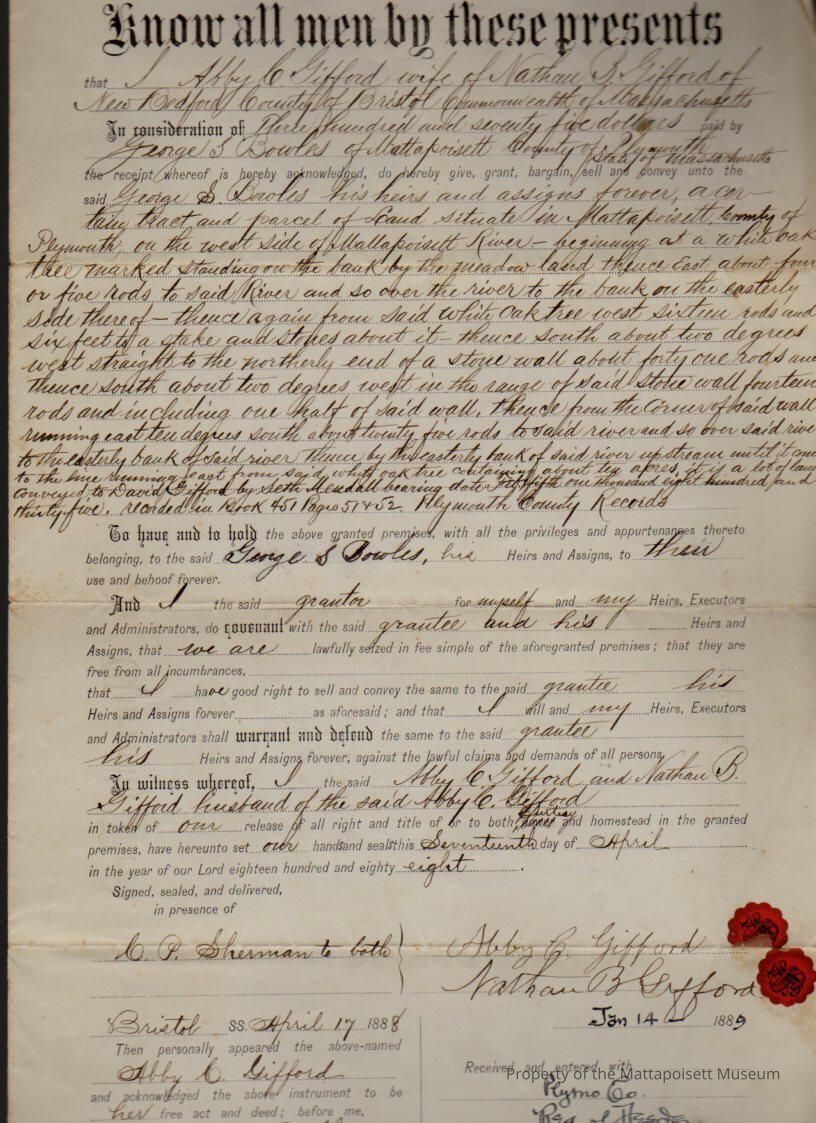 Know all men by these presents
that I Abby C Gifford wife of Nathan B. Gifford of
New Bedford County of Bristol Commonwealth of Massachusetts
In consideration of three hundred and seventy five dollars paid by
George S Bowles of Mattapoisett County of Plymouth
State of Massachusetts
the receipt whereof is hereby acknowledged, do hereby give, grant, bargain, sell and convey unto the
said George S. Bowles his heirs and assigns forever, a cer-
tain tract and parcel of Land situate in Mattapoisett, County of
Plymouth, on the west side of Mattapoisett River - beginning at a white oak
tree marked standing on the bank by the meadow land thence East about four
or five rods to said River and so over the river to the bank on the easterly
side thereof - thence again from said white oak tree west sixteen rods and
six feet to a stake and stones about it - thence south about two degrees
west straight to the northerly end of a stone wall about forty one rods and
thence south about two degrees west in the range of said stone wall fourteen
rods and including one half of said wall, thence from the corner of said wall
running east ten degrees south about twenty five rods to said river and so over said rive
to the easterly bank of said river thence by the easterly bank of said river upstream until it com
to the line running East from said white oak tree containing about ten acres, it is a lot of land
conveyed to David Gifford by Seth Mendall bearing date fifth one thousand eight hundred and
thirty five. recorded in Book 451 Pages 51 & 52. Plymouth County Records
To have and to hold the above granted premises, with all the privileges and appurtenances thereto
belonging, to the said George S Bowles, his Heirs and Assigns, to their
use and behoof forever.
And I the said grantor for myself and my Heirs, Executors
and Administrators, do covenant with the said grantee and his Heirs and
Assigns, that we are lawfully seized in fee simple of the aforegranted premises; that they are
free from all incumbrances,
that I have good right to sell and convey the same to the said grantee his
Heirs and Assigns forever as aforesaid; and that I will and my Heirs, Executors
and Administrators shall warrant and defend the same to the said grantee
his Heirs and Assigns forever, against the lawful claims and demands of all persons,
In witness whereof, I the said Abby C Gifford and Nathan B.
Gifford husband of the said Abby C. Gifford
in token of our release of all right and title of or to both curtesy and homestead in the granted
premises, have hereunto set our hands and seals this Seventeenth day of April
in the year of our Lord eighteen hundred and eighty eight.
Signed, sealed, and delivered,
in presence of
C. P. Sherman to both
Abby C. Gifford
Nathan B Gifford
Bristol SS. April 17 1888
Jan 14 1889
Then personally appeared the above-named
Abby C. Gifford
and acknowledged the above instrument to be
her free act and deed; before me,
Received and entered with
Plymo Co.
Reg of Deeds
Property of the Mattapoisett Museum